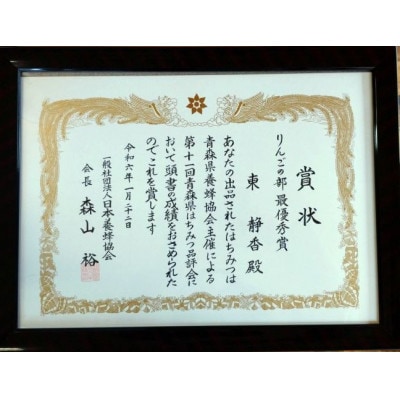 賞状
りんごの部 最優秀賞
東 静香 殿
あなたの出品されたはちみつは
青森県養蜂協会主催による
第十一回青森県はちみつ品評会に
おいて頭書の成績をおさめられた
のでこれを賞します
令和六年一月二十二日
一般社団法人日本養蜂協会
会長 森山 裕